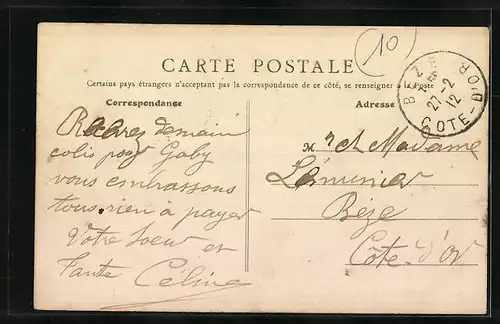 10
CARTE POSTALE
Certains pays étrangers n'acceptant pas la correspondance de ce côté, se renseigner à la Poste
Correspondance
Adresse
BÈZE
27-2
12
COTE-D'OR
demain
colis pour Gaby
vous embrassons
tous. rien à payer
Votre soeur et
Tante Céline
M r et Madame
Lémunier
Bèze
Côte d'or